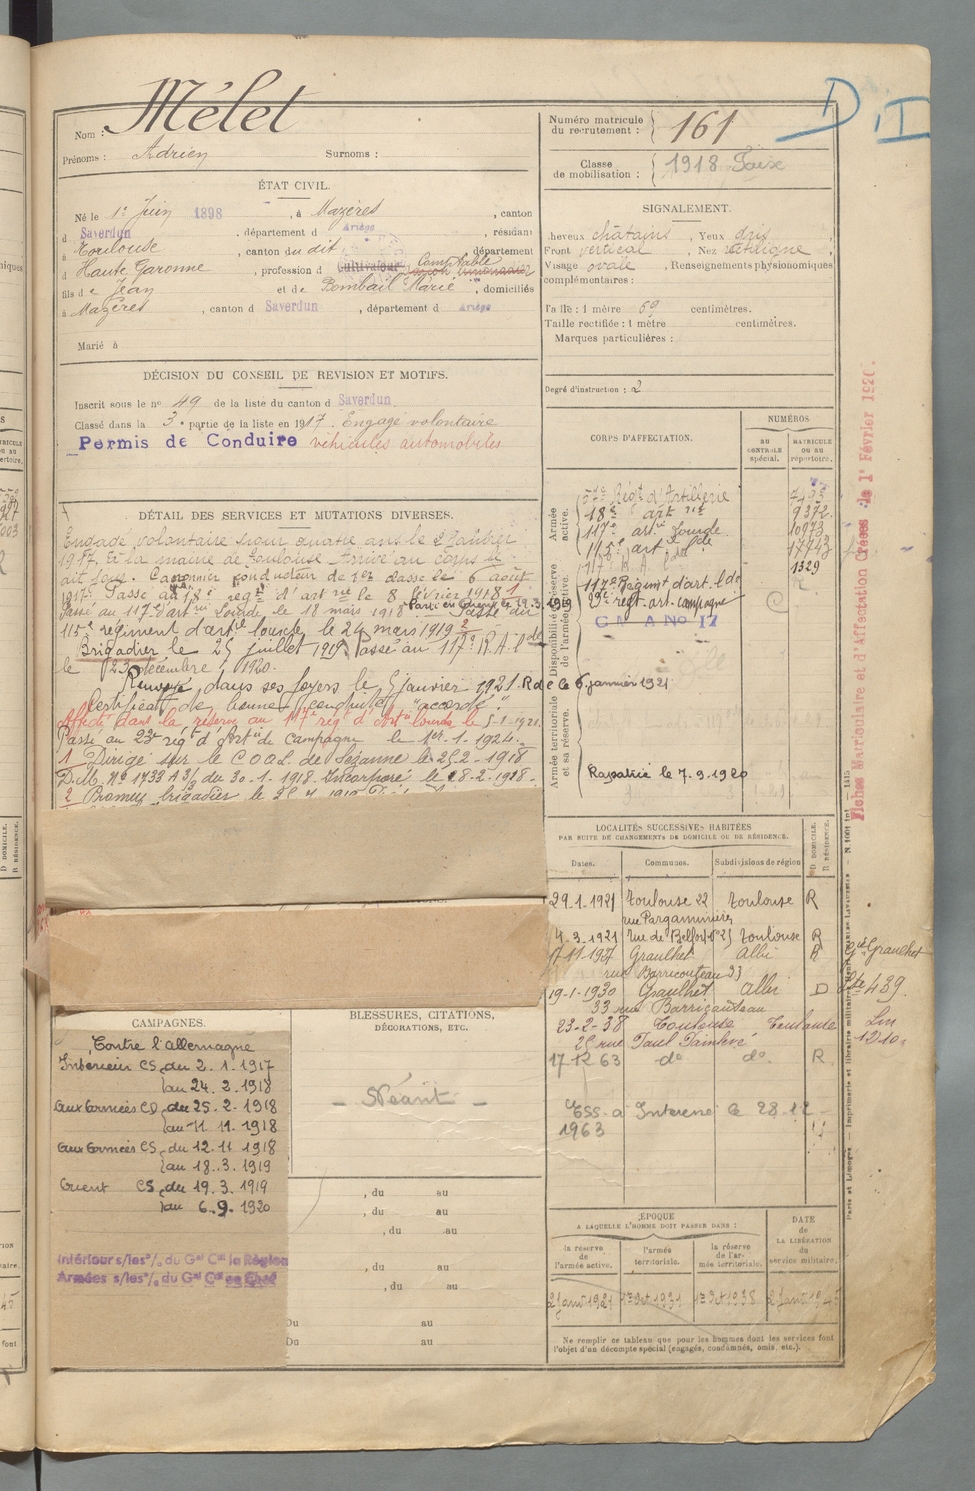 Nom : Mélet
Prénoms : Adrien Surnoms :
ÉTAT CIVIL.
Né le 1er Juin 1898, à Mazères, canton
d Saverdun, département d Ariège, résidant
à Toulouse, canton du dit, département
d Haute Garonne, profession d Cultivateur Comptable garçon limonadier
fils de Jean et de Bombail Marie, domiciliés
à Mazères, canton d Saverdun, département d Ariège
Marié à
DÉCISION DU CONSEIL DE REVISION ET MOTIFS.
Inscrit sous le n° 49 de la liste du canton d Saverdun
Classé dans la 3e partie de la liste en 1917. Engagé volontaire
Permis de Conduire véhicules automobiles
DÉTAIL DES SERVICES ET MUTATIONS DIVERSES.
Engagé volontaire pour quatre ans le 2 Janvier
1917, à la mairie de Toulouse. Arrivé au corps le
dit jour. Canonnier conducteur de 2e classe le 6 août
1917. Passé au 18e régt d'artrie le 8 février 1918 1
Passé au 117e d'artrie Lourde le 18 mars 1918 Parti en Orient le 19.3.1919 Passé au
115e régiment d'artie lourde le 24 mars 1919 2
Brigadier le 25 juillet 1919 Passé au 117e R.A.Lde
le 23 décembre 1920.
Renvoyé dans ses foyers le 5 janvier 1921. R d c le 6 janvier 1921
Certificat de bonne conduite "accordé".
Affecté dans la réserve au 117e rég. d'Artie lourde le 5-1-1921
Passé au 23e régt d'Artie de Campagne le 1er-1-1924.
1 Dirigé sur le C.O.A.L. de Sézanne le 25-2-1918
D.M. N° 1933 A 3/3 du 30-1-1918. Incorporé le 28-2-1918.
2 Promu brigadier le 25
CAMPAGNES.
Contre l'allemagne
Intérieur CS du 2.1.1917
au 24.2.1918
aux Armées CD du 25.2.1918
au 11.11.1918
aux Armées CS du 12.11.1918
au 18.3.1919
Orient CS du 19.3.1919
au 6.9.1920
Intérieur s/les °/o du Gal Ct la Région
Armées s/les °/o du Gal Ct en Chef
BLESSURES, CITATIONS,
DÉCORATIONS, ETC.
- Néant -
, du au
, du au
, du au
, du au
, du au
Du au
Du au
Numéro matricule
du recrutement : 161
Classe
de mobilisation : 1918
D.I
SIGNALEMENT.
Cheveux châtains, Yeux gris,
Front vertical, Nez rectiligne,
Visage ovale, Renseignements physionomiques
complémentaires :
Taille : 1 mètre 69 centimètres.
Taille rectifiée : 1 mètre centimètres.
Marques particulières :
Degré d'instruction : 2
CORPS D'AFFECTATION.
NUMÉROS
AU CONTROLE spécial.
MATRICULE OU AU répertoire.
Armée active.
57e Régt d'Artillerie 7495
18e artrie 9372
117e artie Lourde 10973
115e artie Lde 17743
117e R.A.L 1329
Disponibilité et réserve de l'armée active.
117e Régimt d'art. Lde
23e régt art. campagne
C M A No 17
Armée territoriale et sa réserve.
Rapatrié le 7.9.1920
LOCALITÉS SUCCESSIVES HABITÉES
PAR SUITE DE CHANGEMENTS DE DOMICILE OU DE RÉSIDENCE.
Dates. Communes. Subdivisions de région D DOMICILE. R RÉSIDENCE.
29-1-1921 Toulouse 22 Toulouse R
rue Pargaminières
4-3-1921 rue de Belfort n°25 Toulouse R
17-11-1927 Graulhet Albi R
rue Barricouteau 33
19-1-1930 Graulhet Albi D
33 rue Barricouteau
23-2-38 Toulouse Toulouse
25 rue Paul Painlevé
17-12 63 d° d° R
1963
ÉPOQUE
A LAQUELLE L'HOMME DOIT PASSER DANS :
la réserve de l'armée active.
l'armée territoriale.
la réserve de l'armée territoriale.
DATE de LA LIBÉRATION du service militaire.
2 Janv 1921 1er Oct 1931 1er Oct 1938 2 Janv 1945
Ne remplir ce tableau que pour les hommes dont les services font
l'objet d'un décompte spécial (engagés, condamnés, omis, etc.).
Fiches Matriculaire et d'Affectation Créées le 1er Février 1926.
Graulhet
439.
1210